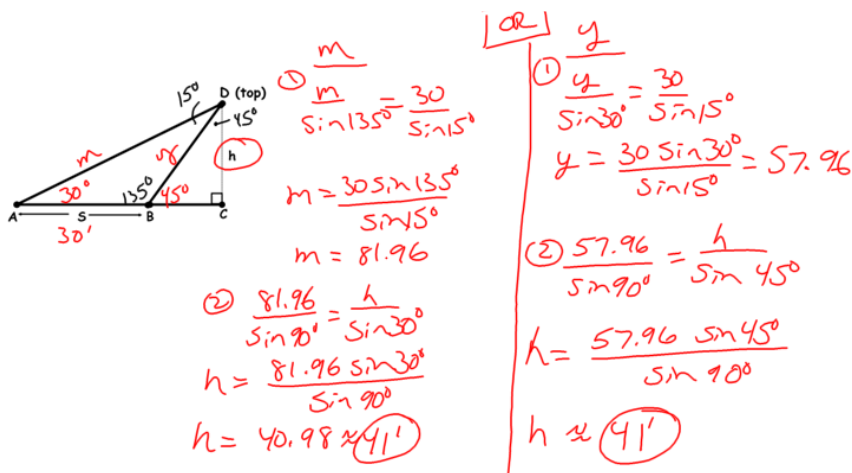 15°
D (top)
45°
m
y
h
30°
135°
45°
A
S
B
C
30'
m
①
m/sin135° = 30/sin15°
m = 30 sin 135°/sin15°
m = 81.96
② 81.96/sin90° = h/sin30°
h = 81.96 sin30°/sin 90°
h = 40.98 ≈ 41'
OR
y
①
y/sin30° = 30/sin15°
y = 30 sin30°/sin15° = 57.96
② 57.96/sin90° = h/sin 45°
h = 57.96 sin45°/sin 90°
h ≈ 41'